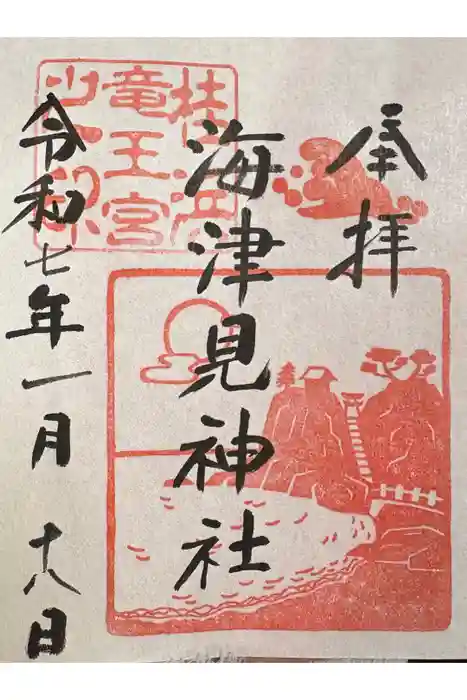 奉拝
海津見神社
令和七年一月十八日
桂浜
竜王宮